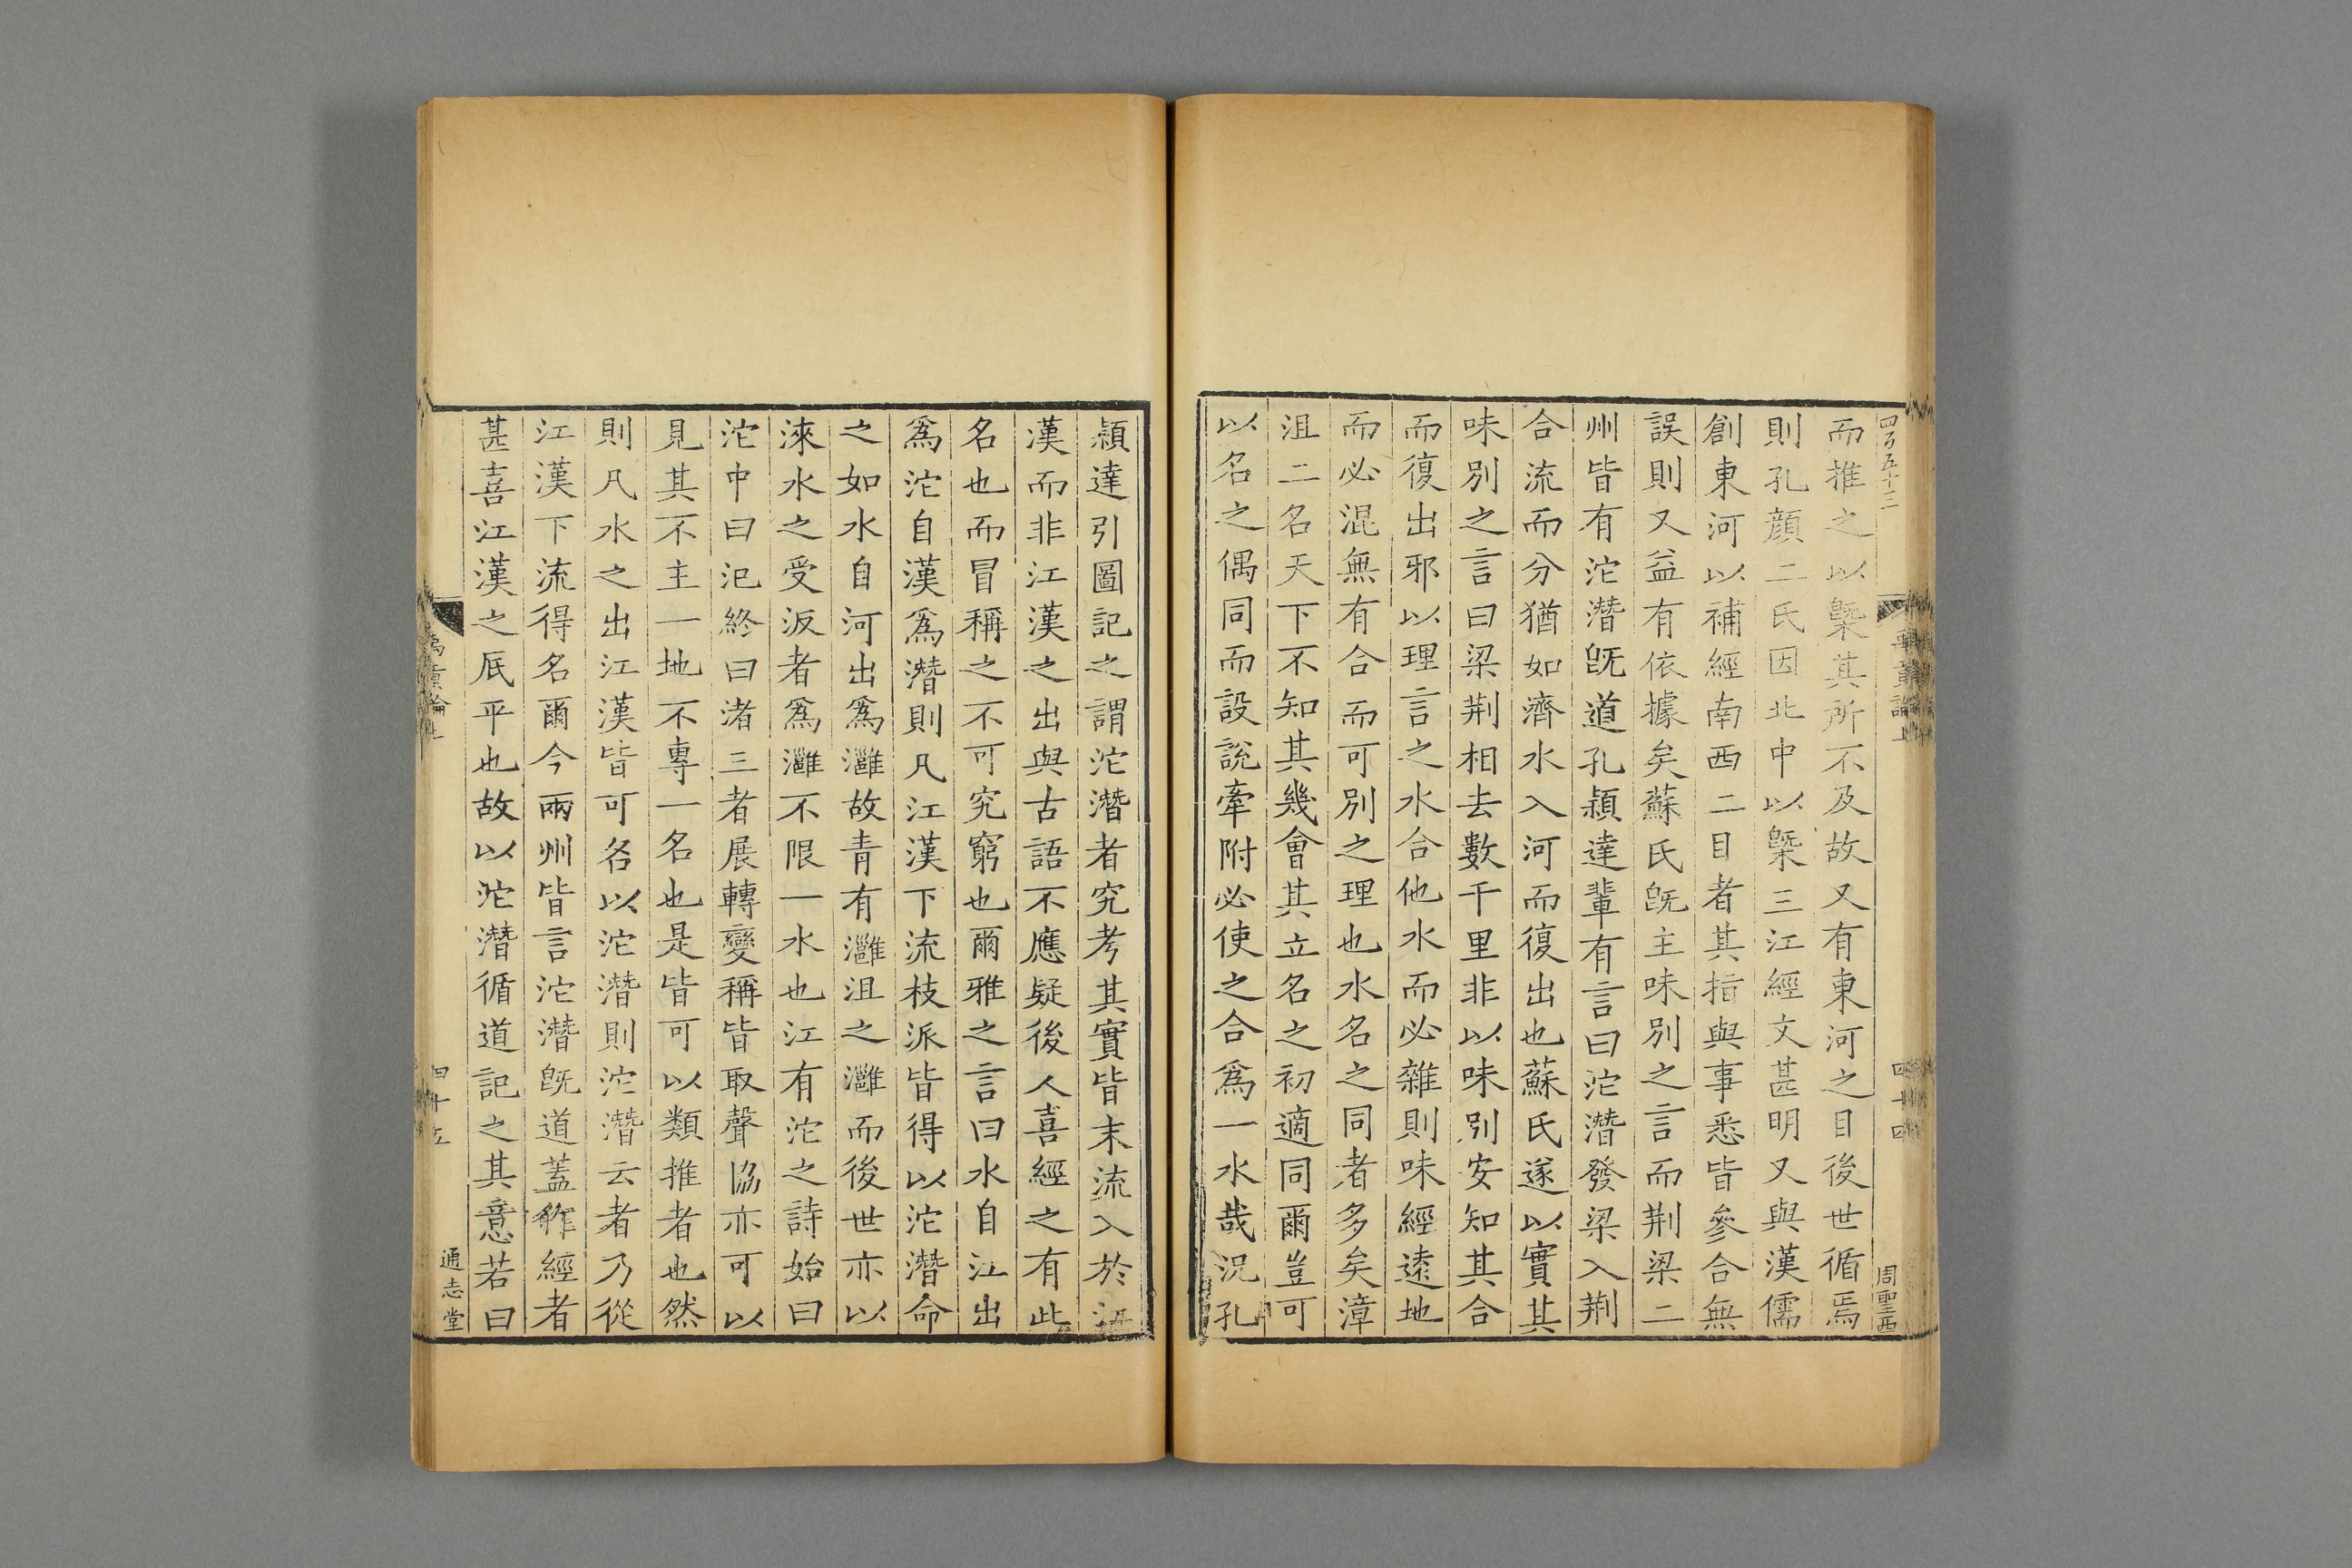 四百五十三
周聖西
而推之以槩其所不及故又有東河之目後世循焉
則孔顏二氏因北中以槩三江經文甚明又與漢儒
創東河以補經南西二目者其指與事悉皆參合無
誤則又益有依據矣蘇氏旣主味別之言而荆梁二
州皆有沱潛旣道孔穎達輩有言曰沱潛發梁入荆
合流而分猶如濟水入河而復出也蘇氏遂以實其
味別之言曰梁荆相去數千里非以味別安知其合
而復出邪以理言之水合他水而必雜則味經遠地
而必混無有合而可別之理也水名之同者多矣漳
沮二名天下不知其幾會其立名之初適同爾豈可
以名之偶同而設說牽附必使之合爲一水哉況孔
穎達引圖記之謂沱潛者究考其實皆末流入於江
漢而非江漢之出與古語不應疑後人喜經之有此
名也而冒稱之不可究窮也爾雅之言曰水自江出
爲沱自漢爲潛則凡江漢下流枝派皆得以沱潛命
之如水自河出爲灉故青有灉沮之灉而後世亦以
淶水之受汳者爲灉不限一水也江有沱之詩始曰
沱中曰汜終曰渚三者展轉變稱皆取聲協亦可以
見其不主一地不專一名也是皆可以類推者也然
則凡水之出江漢皆可名以沱潛則沱潛云者乃從
江漢下流得名爾今兩州皆言沱潛旣道蓋作經者
甚喜江漢之厎平也故以沱潛循道記之其意若曰
禹貢論上
四十五
通志堂